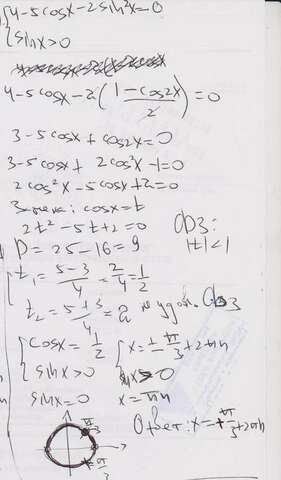 4-5cosx-2sin²x=0
sinx>0
4-5cosx-2(1-cos2x/2)=0
3-5cosx+cos2x=0
3-5cosx+2cos²x-1=0
2cos²x-5cosx+2=0
Замена: cosx=t
ОВЗ:
2t²-5t+2=0
|t|<1
D=25-16=9
t₁=5-3/4=2/4=1/2
t₂=5+3/4=2 не удов. ОВЗ
cosx=1/2
sinx>0
x=±π/3+2πn
sinx>0
sinx=0
x=πn
π/3
-π/3
Ответ: x=+π/3+2πn